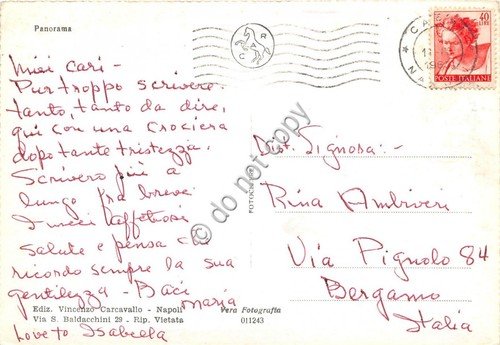 Panorama
Miei cari -
Purtroppo scrivere
tanto, tanto da dire,
qui con una Crociera
dopo tante tristezza.
Scriverò più a
lungo fra breve
I miei affettuosi
saluti e pensa che
ricordo sempre la sua
gentilezza - Baci
Maria
Love to Isabella
Ediz. Vincenzo Carcavallo - Napoli
Via S. Baldacchini 29 - Rip. Vietata
Vera Fotografia
011243
FOTOGRAFIA
C A R
CA
NA
40
LIRE
POSTE ITALIANE
Dist. Signora:-
Rina Ambiveri
Via Pignolo 84
Bergamo
Italia
© do not copy